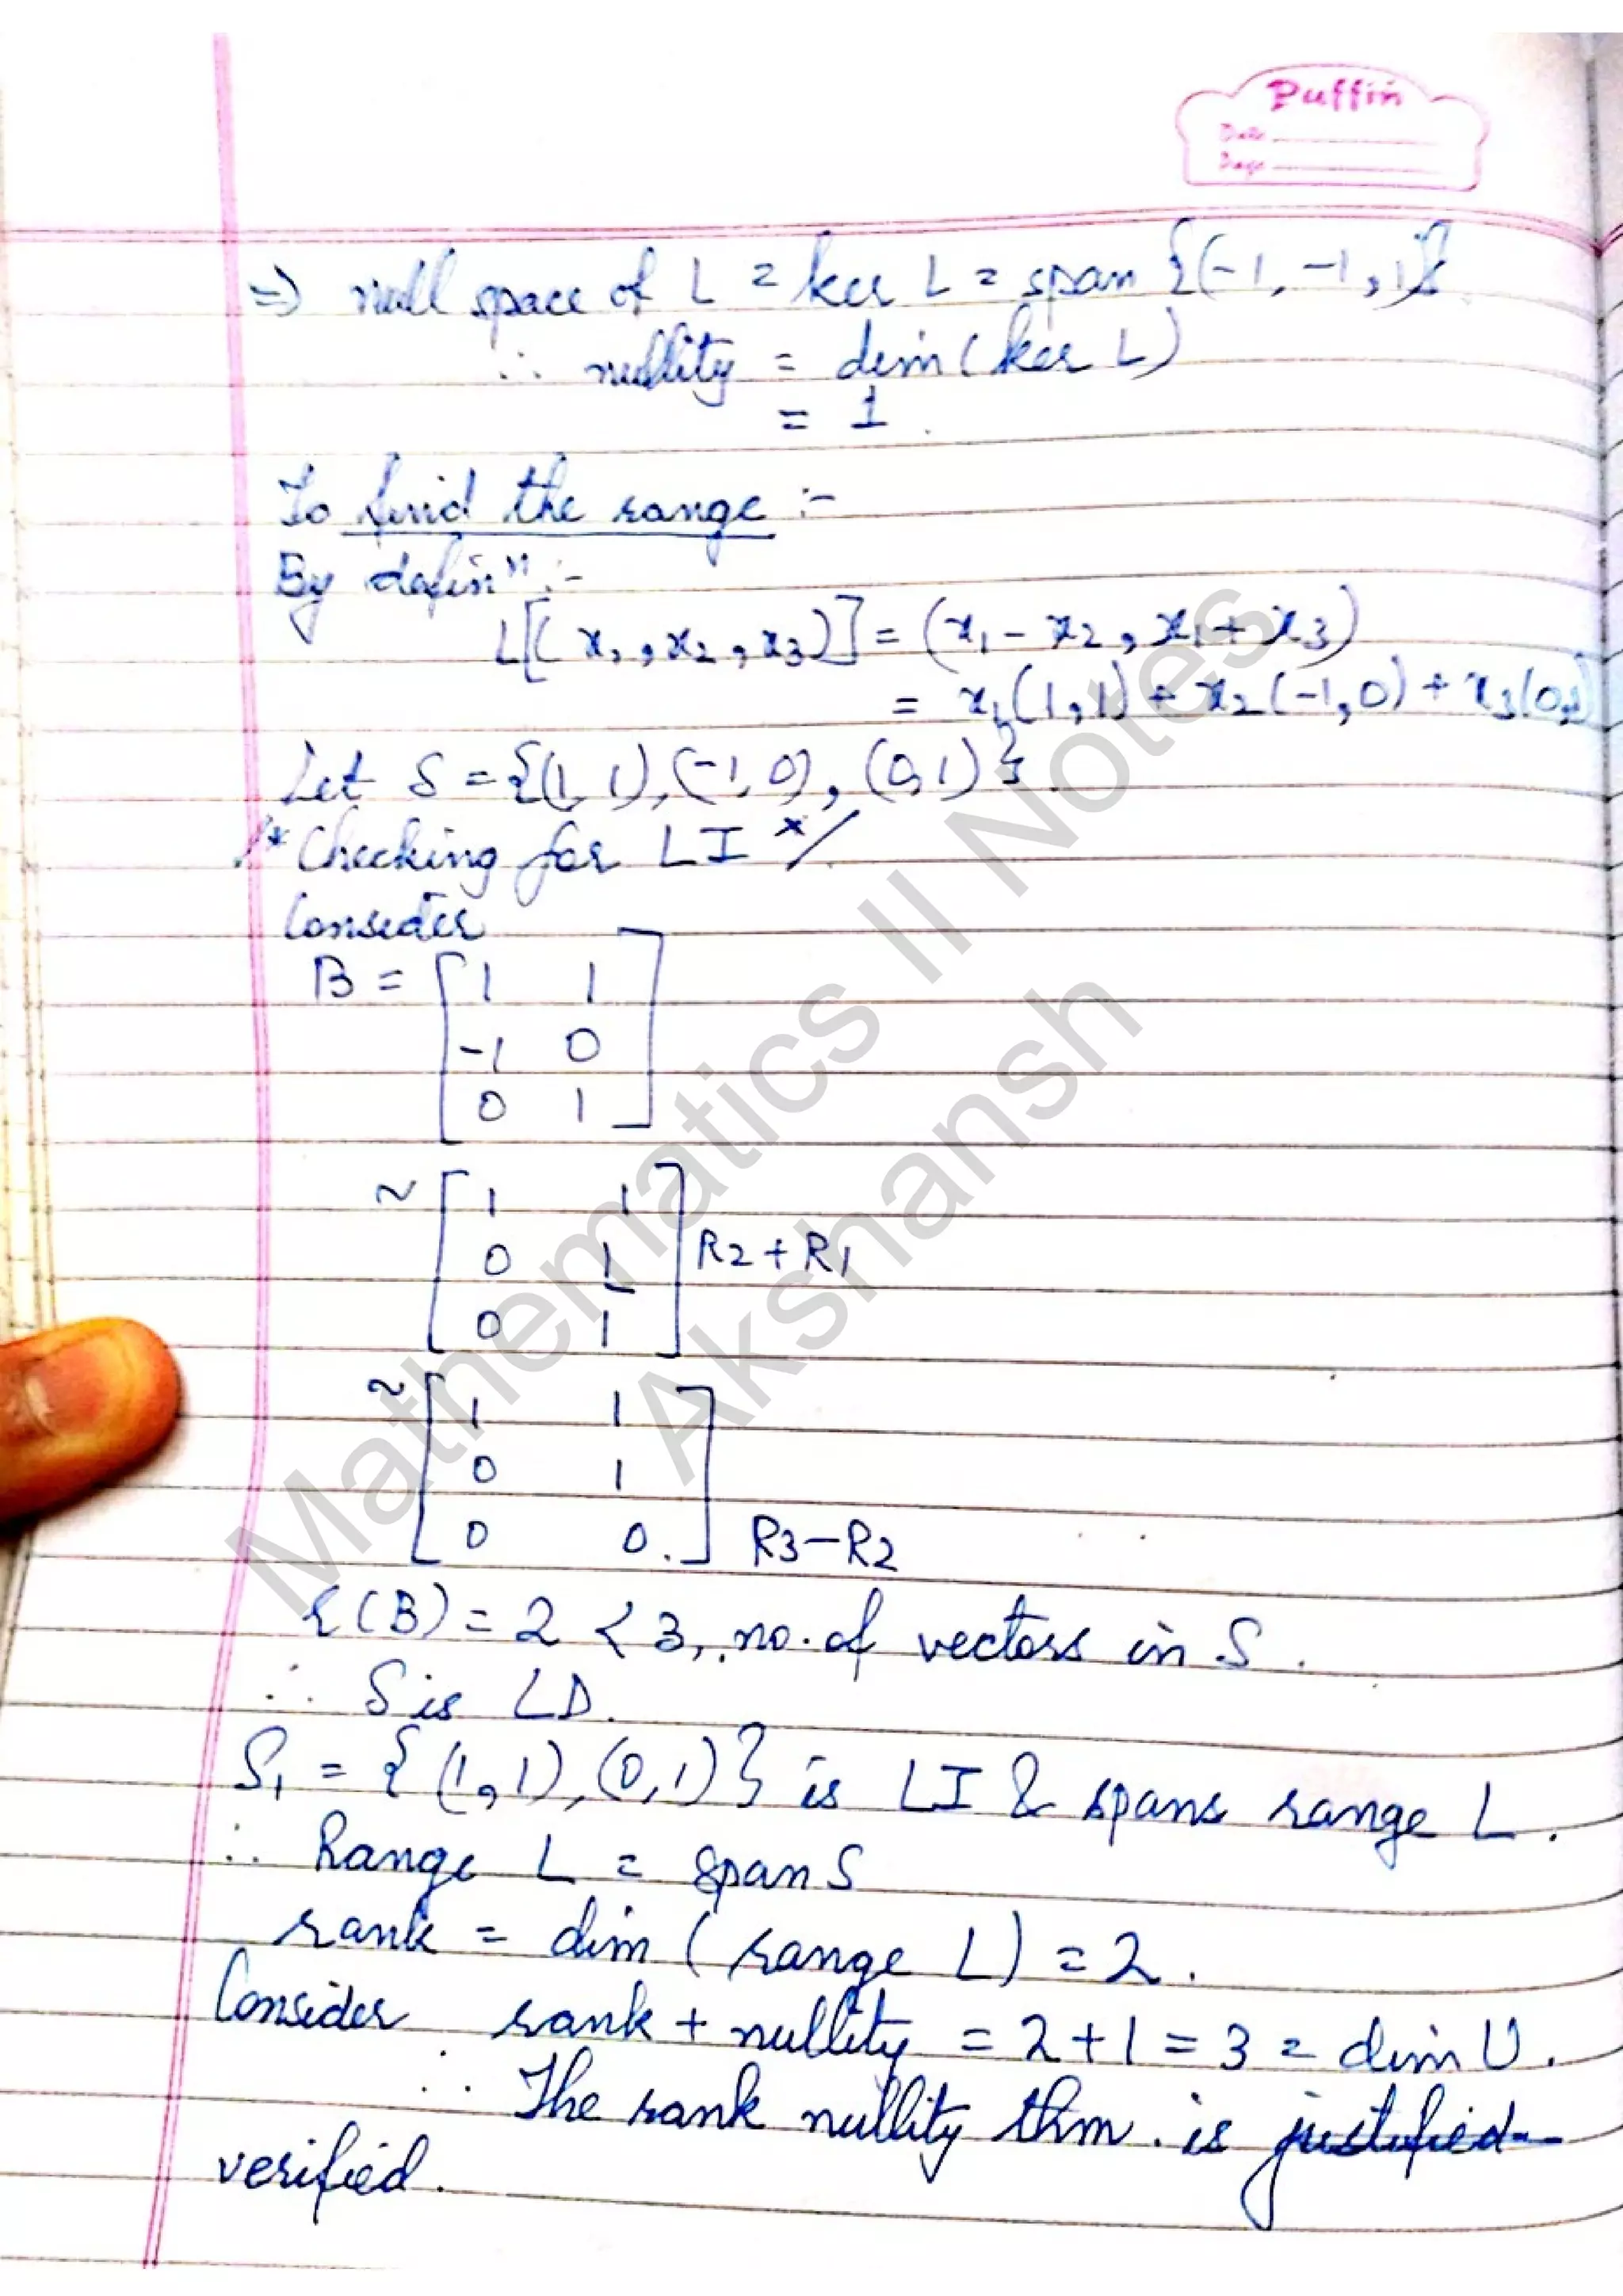 Puffin
Date
Page
⇒ null space of L = ker L = span {(-1, -1, 1)}
∴ nullity = dim (ker L)
= 1.
To find the range :-
By defin" :-
L[(x₁, x₂, x₃)] = (x₁ - x₂, x₁ + x₃)
= x₁(1,1) + x₂(-1,0) + x₃(0,1)
Let S = {(1, 1), (-1, 0), (0, 1)}.
/* Checking for LI */
Consider
B = [ 1 1
-1 0
0 1 ]
~ [ 1 1
0 1
0 1 ] R2 + R1
~ [ 1 1
0 1
0 0. ] R3-R2
ρ(B) = 2 < 3, no. of vectors in S.
∴ S is LD.
S₁ = {(1, 1), (0, 1)} is LI & spans range L.
∴ Range L = span S
rank = dim (range L) = 2.
Consider rank + nullity = 2 + 1 = 3 = dim U.
∴ The rank nullity thm. is justified
verified.
Mathematics II Notes
Akshansh